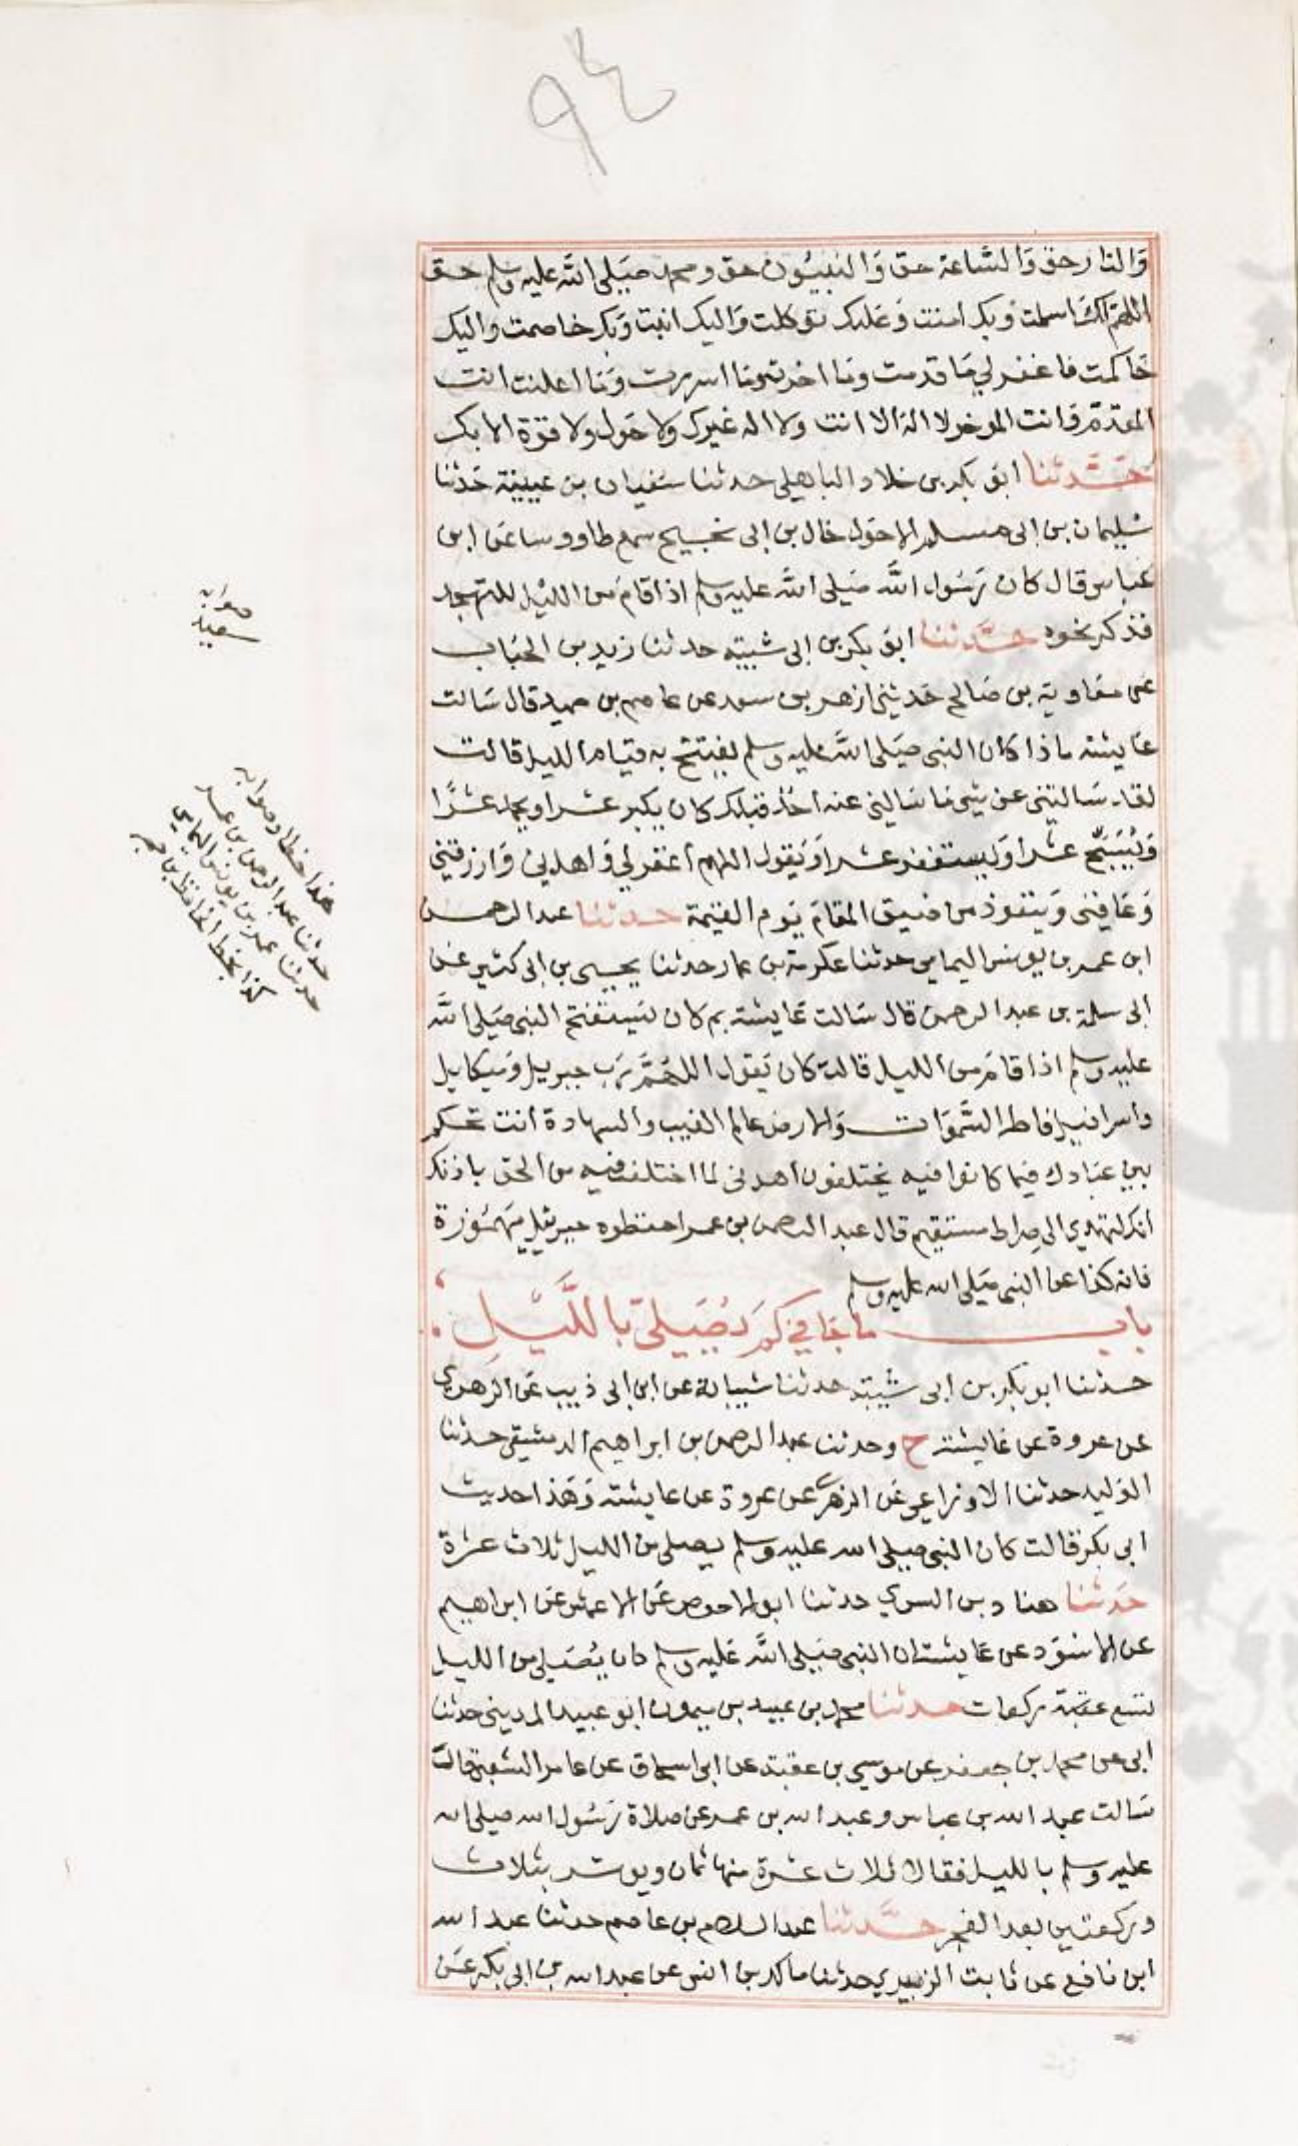 ٩٤
والنار حق والساعة حق والنبيون حق ومحمد صلى الله عليه وسلم حق
اللهم لك اسلمت وبك امنت وعليك توكلت واليك انبت وبك خاصمت واليك
حاكمت فاغفر لي ما قدمت وما اخرت وما اسررت وما اعلنت انت
المقدم وانت الموخر لا اله الا انت ولا اله غيرك ولا حول ولا قوة الا بك
حدثنا ابو بكر بن خلاد الباهلي حدثنا سفيان بن عيينة حدثنا
سليمان بن ابى مسلم الاحول خال بن ابى نجيح سمع طاووسا عن ابن
عباس قال كان رسول الله صلى الله عليه وسلم اذا قام من الليل للتهجد
فذكر نحوه حدثنا ابو بكر بن ابى شيبه حدثنا زيد بن الحباب
عن معاوية بن صالح حدثنى ازهر بن سعد عن عاصم بن حميد قال سالت
عايشه ماذا كان النبى صلى الله عليه وسلم يفتتح به قيام الليل قالت
لقد سالتنى عن شي ما سالنى عنه احد قبلك كان يكبر عشرا ويحمد عشرا
ويسبح عشرا ويستغفر عشرا ويقول اللهم اغفر لي واهدنى وارزقني
وعافنى ويتعوذ من ضيق المقام يوم القيمة حدثنا عبد الرحمن
ابن عمر بن يونس اليمامى حدثنا عكرمة بن عمار حدثنا يحيى بن ابى كثير عن
ابى سلمة بن عبد الرحمن قال سالت عايشة بم كان يستفتح النبى صلى الله
عليه وسلم اذا قام من الليل قالت كان يقول اللهم رب جبريل وميكايل
واسرافيل فاطر السموات والارض عالم الغيب والشهادة انت تحكم
بين عبادك فيما كانوا فيه يختلفون اهدنى لما اختلف فيه من الحق باذنك
انك لتهدي الى صراط مستقيم قال عبد الرحمن بن عمر احفظوه جبرئيل مهموزة
فانه كذا عن النبى صلى الله عليه وسلم
باب ما جا في كم يصلى بالليل
حدثنا ابو بكر بن ابى شيبة حدثنا شبابة عن ابن ابى ذيب عن الزهري
عن عروة عن عايشة ح وحدثنا عبد الرحمن بن ابراهيم الدمشقى حدثنا
الوليد حدثنا الاوزاعى عن الزهرى عن عروة عن عايشة وهذا حديث
ابى بكر قالت كان النبى صلى الله عليه وسلم يصلى من الليل ثلاث عشرة
حدثنا هناد بن السري حدثنا ابو الاحوص عن الاعمش عن ابراهيم
عن الاسود عن عايشة ان النبى صلى الله عليه وسلم كان يصلى من الليل
تسع ركعات حدثنا محمد بن عبيد بن ميمون ابو عبيد المدينى حدثنا
ابى عن محمد بن جعفر عن موسى بن عقبة عن ابى اسحاق عن عامر الشعبى قال
سالت عبد الله بن عباس وعبد الله بن عمر عن صلاة رسول الله صلى الله
عليه وسلم بالليل فقالا ثلاث عشرة منها ثمان ويوتر بثلاث
وركعتين بعد الفجر حدثنا عبد السلام بن عاصم حدثنا عبد الله
ابن نافع عن ثابت الزبيري حدثنا مالك بن انس عن عبد الله بن ابى بكر عن
صوابه
سعيد
هذا خطا وصوابه
حدثنا عبد الرحمن بن عمر
حدثنا عمر بن يونس اليمامي
كذا بخط الحافظ بن حجر